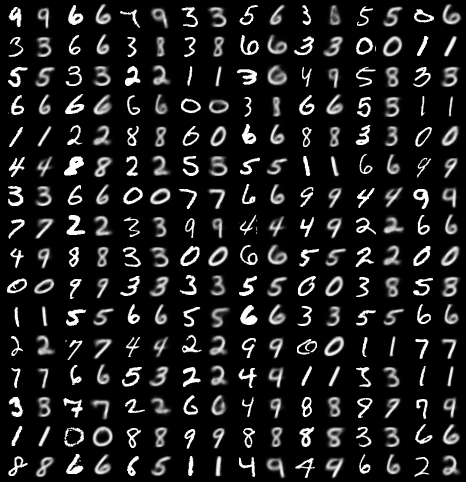 9 9 6 6 7 9 3 3 5 6 3 8 5 5 0 6
3 3 6 6 3 8 3 8 6 6 3 3 0 0 1 1
5 5 3 3 2 2 1 1 3 6 4 9 5 8 3 3
6 6 6 6 6 6 0 0 3 8 6 6 5 5 1 1
1 1 2 2 8 8 0 0 6 6 8 8 3 3 0 0
4 4 8 8 2 2 5 5 5 5 1 1 6 6 9 9
3 3 6 6 0 0 7 7 6 6 9 9 4 4 9 9
7 7 2 2 3 3 9 9 4 4 4 9 2 2 6 6
4 9 8 8 3 3 0 0 6 6 5 5 2 2 0 0
0 0 9 9 3 3 3 3 5 5 0 0 3 8 5 8
1 1 5 5 6 6 5 5 6 6 3 3 5 5 6 6
2 2 7 7 4 4 2 2 9 9 0 0 1 1 7 7
7 7 6 6 5 3 2 2 4 9 1 1 3 3 1 1
3 3 7 7 2 2 6 6 4 9 8 8 9 9 7 9
1 1 0 0 8 8 9 9 8 8 8 8 3 3 6 6
8 8 6 6 6 5 1 1 4 9 4 9 6 6 2 2